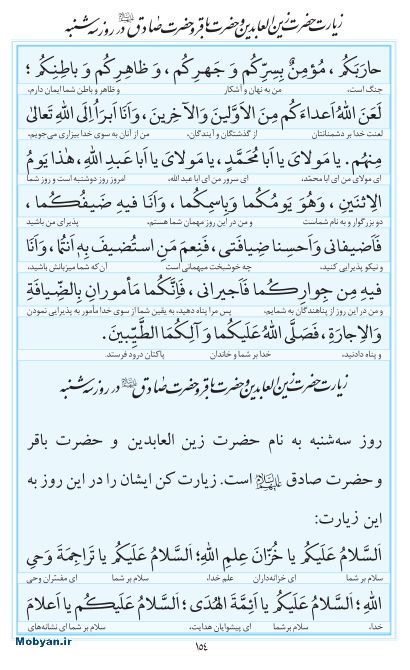 زیارت حضرت زین العابدین و حضرت باقر و حضرت صادق علیهم‌السلام در روز سه شنبه
حارَبَكُم ، مُؤمِنٌ بِسِرِّكُم وَ جَهرِكُم ، وَ ظاهِرِكُم وَ باطِنِكُم ؛
جنگ است، من به نهان و آشکار و ظاهر و باطن شما ایمان دارم،
لَعَنَ اللهُ أعداءَكُم مِنَ الأوَّلينَ وَالآخِرينَ ، وَأنَا أبرَأُ إلَى اللهِ تَعالىٰ
لعنت خدا بر دشمنانتان از گذشتگان و آیندگان، من از آنان به سوی خدا بیزاری می‌جویم.
مِنهُم. یا مَولايَ یا أبا مُحَمَّدٍ ، یا مَولايَ یا أبا عَبدِ اللهِ ، هٰذا يَومُ
ای مولای من ای ابا محمّد، ای سرور من ای ابا عبد الله، امروز روز دوشنبه است و روز شما
الإثنَينِ ، وَهُوَ يَومُكُما وَبِاسمِكُما ، وَأنَا فيهِ ضَيفُكُما ،
دو بزرگوار و به نام شماست و من در این روز مهمان شما هستم، پذیرای من باشید
فَأضيفاني وَأحسِنا ضِيافَتي ، فَنِعمَ مَنِ استُضيفَ بِهِ أنتُما ، وَأنَا
و نیکو پذیرایی کنید، چه خوشبخت میهمانی است آن‌که شما میزبانش باشید،
فيهِ مِن جِوارِكُما فَأجيراني ، فَإنَّكُما مَأمورانِ بِالضِّيافَةِ
و من در این روز از پناهندگان به شمایم، پس مرا پناه دهید، به یقین شما از سوی خدا مأمور به پذیرایی نمودن
وَالإجارَةِ ، فَصَلَّى اللهُ عَلَيكُما وَ آلِكُمَا الطَّيِّبينَ.
و پناه دادنید، خدا بر شما و خاندان پاکتان درود فرستد.
زیارت حضرت زین العابدین و حضرت باقر و حضرت صادق علیهم‌السلام در روز سه شنبه
روز سه‌شنبه به نام حضرت زین العابدین و حضرت باقر
و حضرت صادق علیهم‌السلام است. زیارت کن ایشان را در این روز به
این زیارت:
اَلسَّلامُ عَلَيكُم يا خُزّانَ عِلمِ اللهِ ؛ اَلسَّلامُ عَلَيكُم يا تَراجِمَةَ وَحيِ
سلام بر شما ای خزانه‌داران علم خدا، سلام بر شما ای مفسّران وحی
اللهِ ؛ اَلسَّلامُ عَلَيكُم يا أئِمَّةَ الهُدىٰ ؛ اَلسَّلامُ عَلَيكُم يا أعلامَ
خدا، سلام بر شما ای پیشوایان هدایت، سلام بر شما ای نشانه‌های
١٥٤
Mobyan.ir